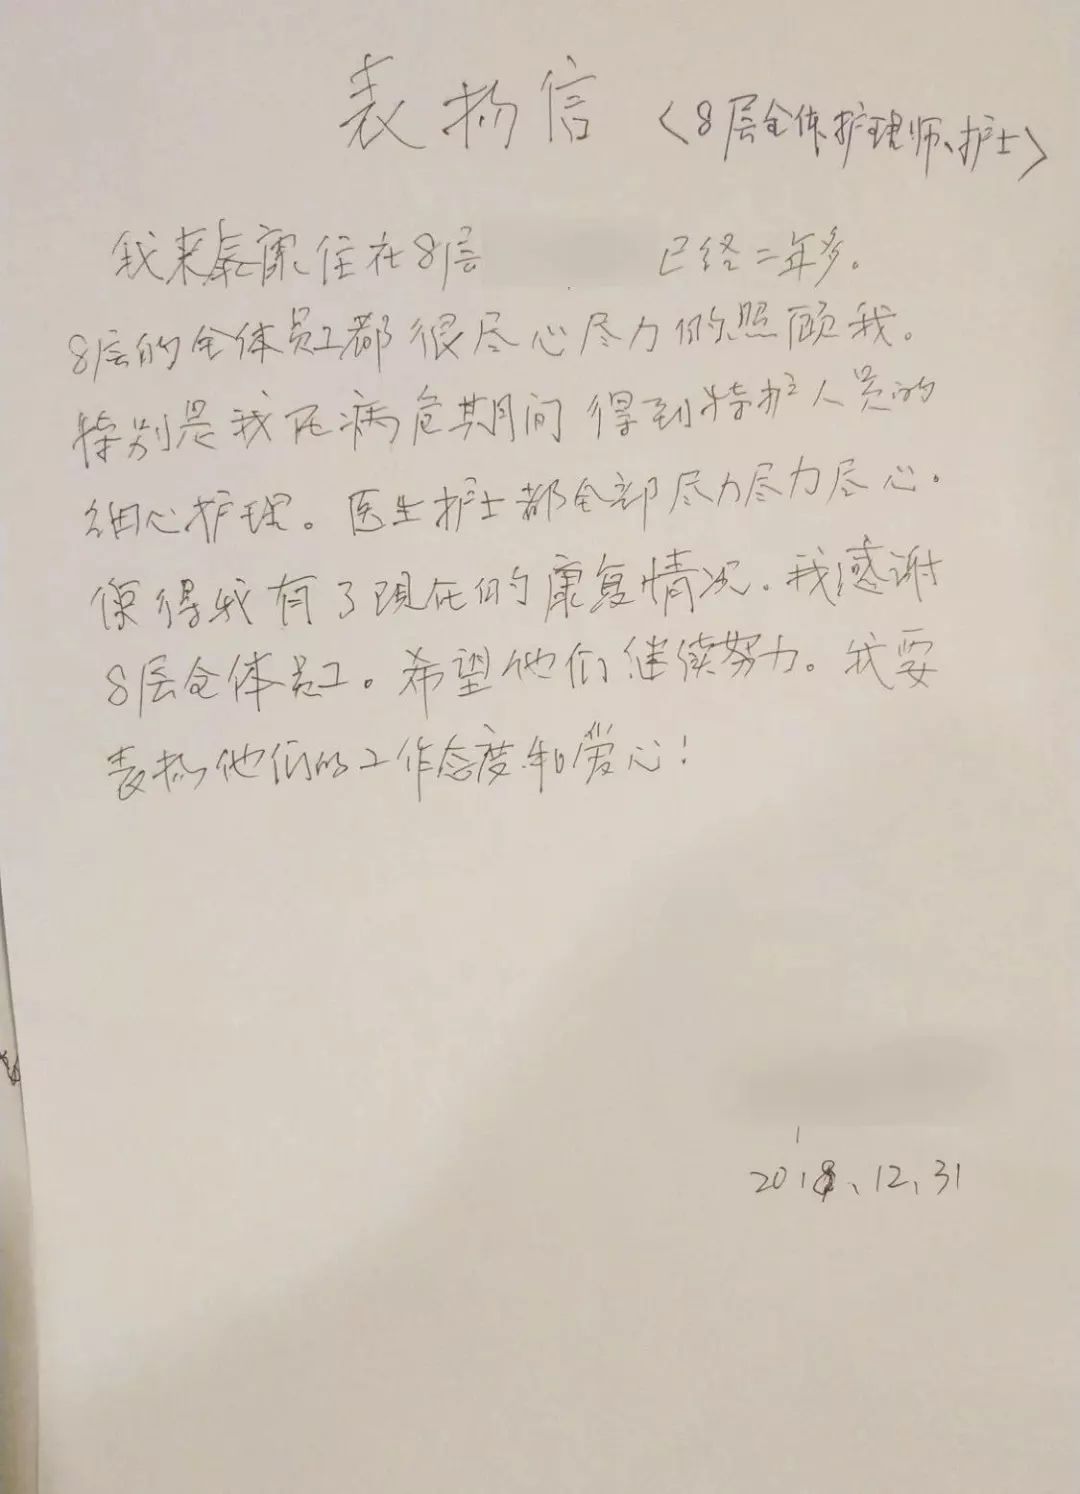 表扬信 〈8层全体护理师、护士〉
我来氧康住在8层 已经二年多。
8层的全体员工都很尽心尽力的照顾我。
特别是我在病危期间得到特护人员的
细心护理。医生护士都全部尽力尽力尽心.
使得我有了现在的康复情况.我感谢
8层全体员工。希望他们继续努力。我要
表扬他们的工作态度和爱心!
2018、12、31